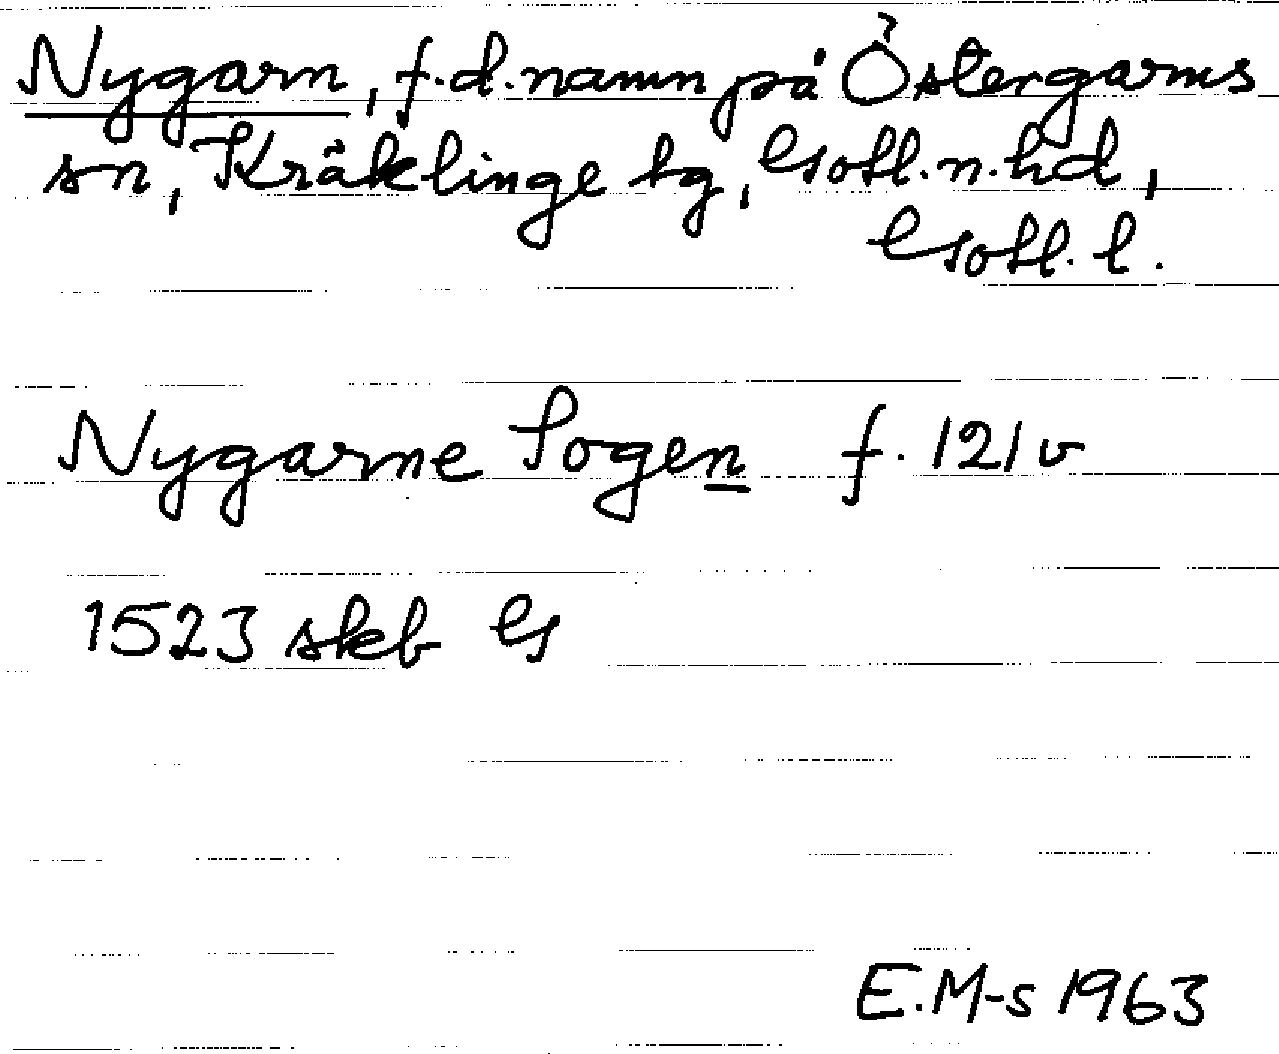 Nygarn, f.d. namn på Östergarns
sn, Kräklinge tg, Gotl. n. hd,
Gotl. l.
Nygarne Sogen f. 121 v
1523 skb G
E. M-s 1963